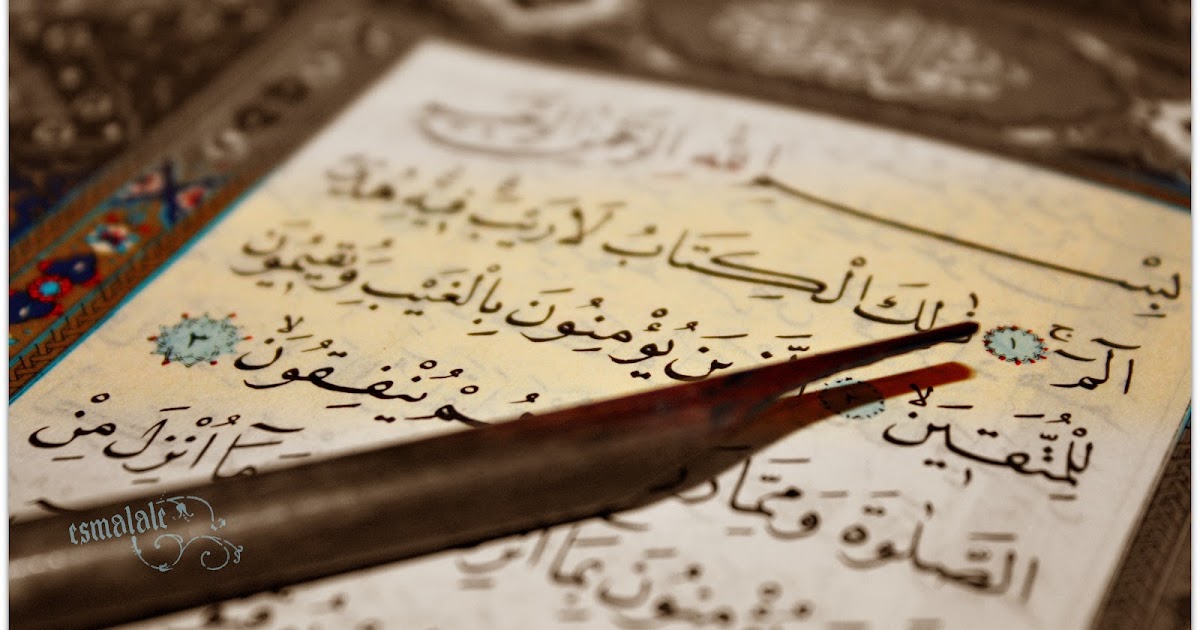 بِسْمِ اللهِ الرَّحْمٰنِ الرَّحِيمِ
الٓمٓ ۚ ١ ذٰلِكَ الْكِتَابُ لَا رَيْبَ فِيهِ هُدًى
لِلْمُتَّقِينَ ۙ ٢ الَّذِينَ يُؤْمِنُونَ بِالْغَيْبِ وَيُقِيمُونَ
الصَّلٰوةَ وَمِمَّا يُنْفِقُونَ ۙ ٣
يُؤْمِنُونَ بِمَٓا مَٓا اُنْزِلَ مِنْ
esmalale